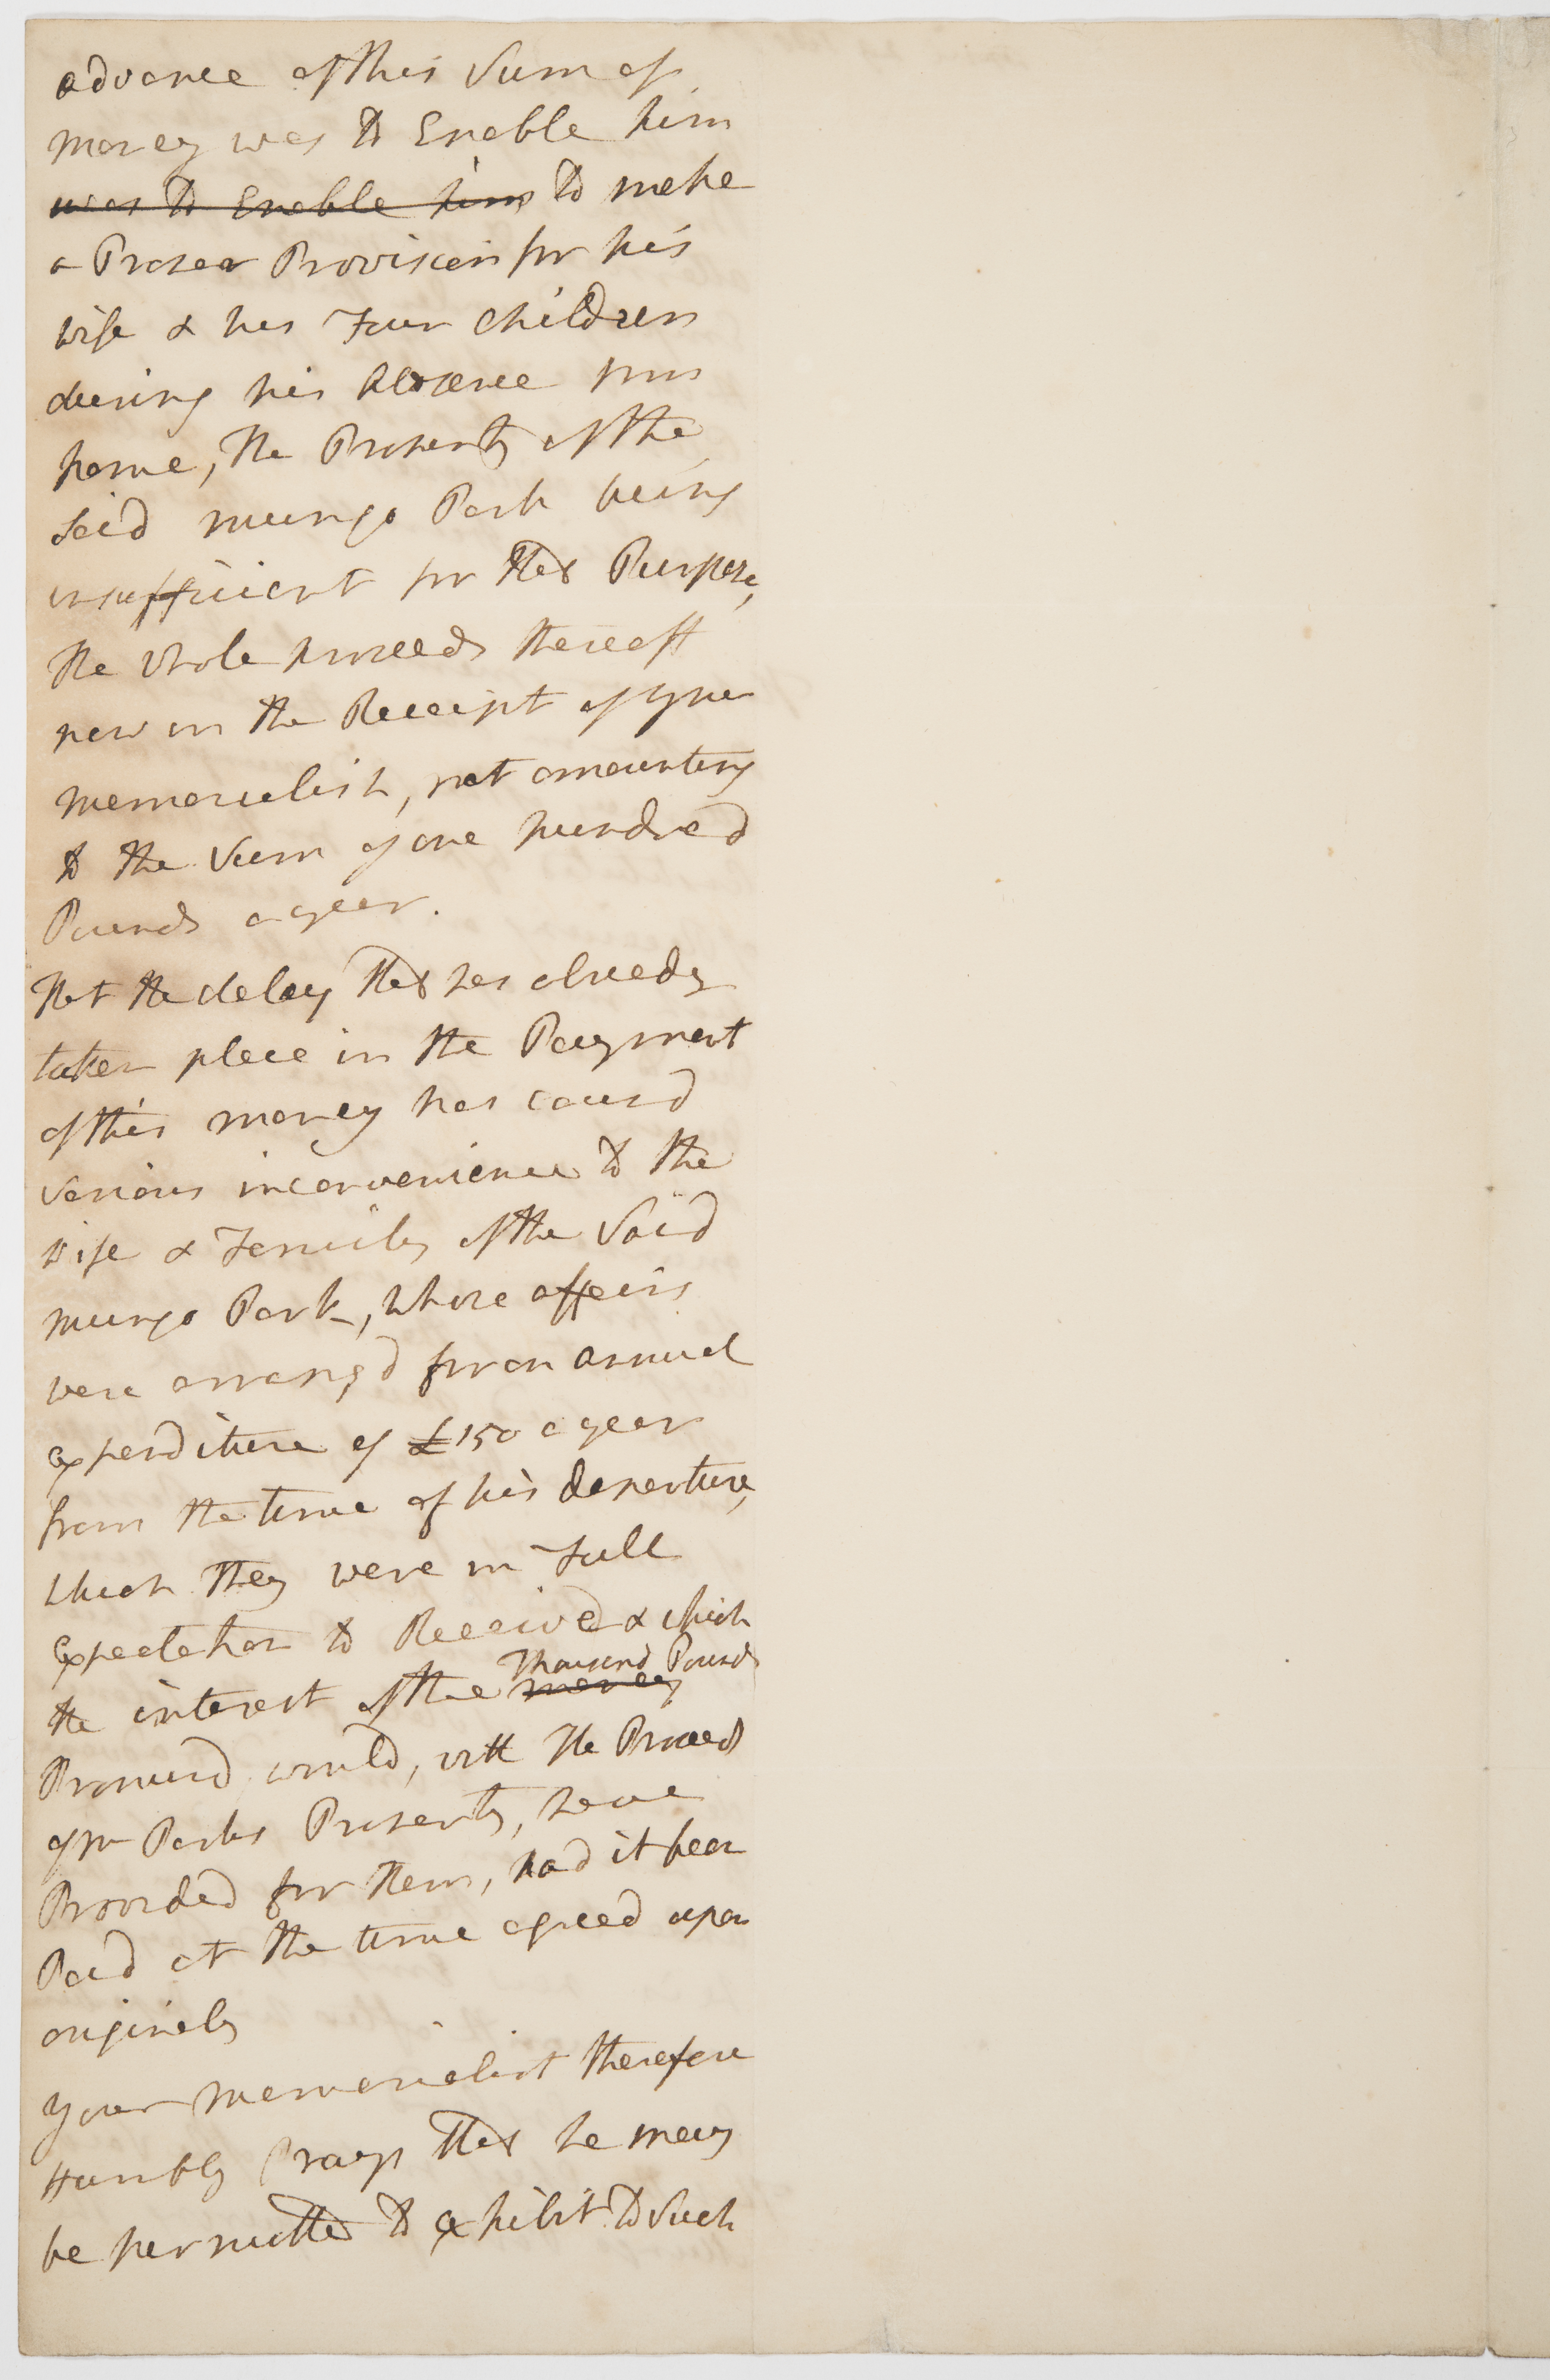 advance of this Sum of
money was to Enable him
was to Enable him to make
a Proper Provision for his
wife & his Four children
during his Absence from
home, The Property of the
said mungo Park being
insufficient for that Purpose,
The whole proceeds thereoff
now in the Receipt of your
memorialist, not amounting
to the Sum of one hundred
Pounds a year.
That the delay that has already
taken place in the Payment
of this money has causd
various inconvenience to the
wife & Family of the Said
mungo Park, whose affairs
were arrangd for an annual
expenditure of £150 a year
from the time of his departure,
which they were in Full
Expectation to Receive & which
the interest of the money Thousand Pounds
Promisd would, with The Proceeds
of Mr Parks Property, have
Provided for them, had it been
Paid at the time agreed upon
originaly
your memorialist therefore
Humbly Prays that he may
be permitted to exhibit to Such